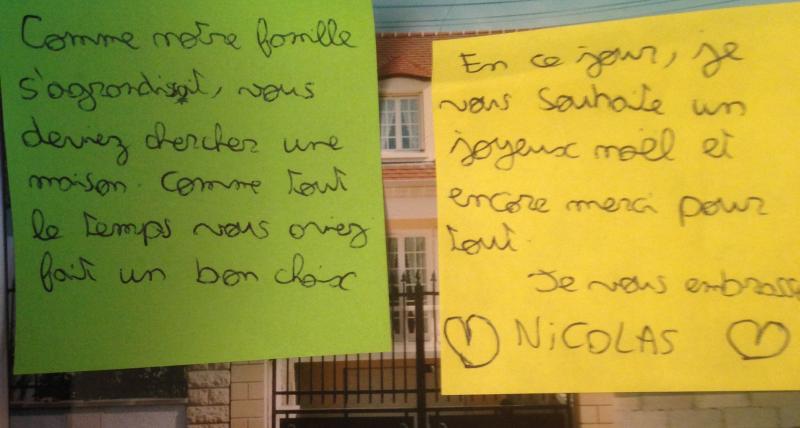 Comme notre famille
s'agrandisait, vous
deviez chercher une
maison. Comme tout
le temps vous aviez
fait un bon choix
En ce jour, je
vous souhaite un
joyeux noël et
encore merci pour
tout.
Je vous embrasse
NiCOLAS